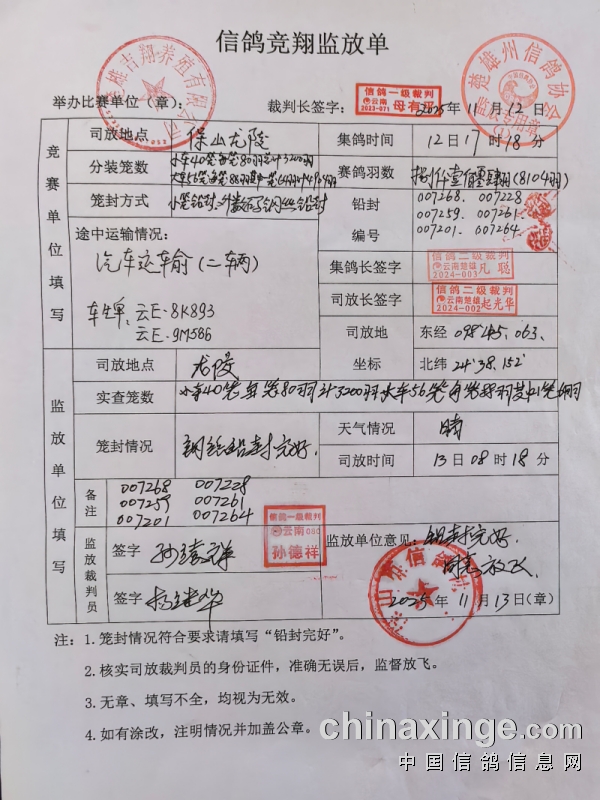 信鸽竞翔监放单
举办比赛单位（章）：
雄吉翔养殖有限公司
裁判长签字：
信鸽一级裁判
云南
2023-071
2025年11月12日
楚雄州信鸽协会
竞赛单位填写
司放地点 保山龙陵
集鸽时间 12日17时18分
分装笼数 小车40笼每笼80羽共计3200羽
赛鸽羽数 (8104羽)
笼封方式
铅封编号
007268. 007228
007259 007261
007201 007264
途中运输情况：
汽车运输(二辆)
车牌：云E-8K893
云E-9M586
集鸽长签字
信鸽二级裁判
云南楚雄 凡聪
2024-003
司放长签字
信鸽二级裁判
云南楚雄 起光华
2024-002
司放地坐标
东经 098°45.063.
北纬 24°38.152'
监放单位填写
司放地点 龙陵
实查笼数 小车40笼每笼80羽计3200羽大车56笼每笼88羽其中1笼64羽
笼封情况 钢丝铅封完好.
天气情况 晴
司放时间 13日08时18分
备注
007268 007228
007259 007261
007201 007264
信鸽一级裁判
云南080
孙德祥
监放裁判员
签字 孙德祥
签字 杨继华
监放单位意见：铅封完好.
同意放飞.
山市信鸽
2025年11月13日(章)
注：1.笼封情况符合要求请填写“铅封完好”。
2.核实司放裁判员的身份证件，准确无误后，监督放飞。
3.无章、填写不全，均视为无效。
4.如有涂改，注明情况并加盖公章。
chinaxinge.com
中国信鸽信息网